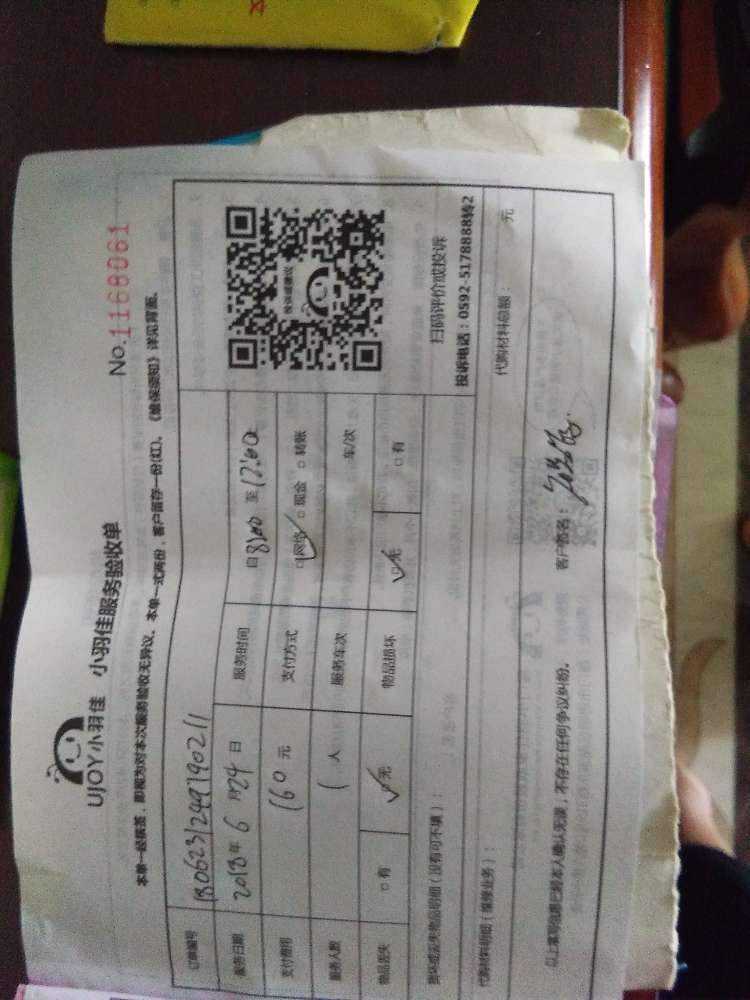 UJOY小羽佳 小羽佳服务验收单
No.1168061
本单一经签签，即视为对本次服务验收无异议。本单一式两份，客户留存一份(红)。《维保须知》详见背面。
订单编号 1806231249190211
服务日期 2018年 6 月 24 日 服务时间 自 8:00 至 12:00
支付费用 160 元 支付方式 □网络 □现金 □转账
服务人数 1 人 服务车次 车/次
物品丢失 □有 □无 物品损坏 □无 □有
投诉或建议
扫码评价或投诉
投诉电话：0592-5178888转2
损坏或丢失物品明细（没有可不填）：
代购材料明细（维修业务）： 代购材料总额： 元
以上填写信息已经本人确认无误，不存在任何争议纠纷。 客户签名：